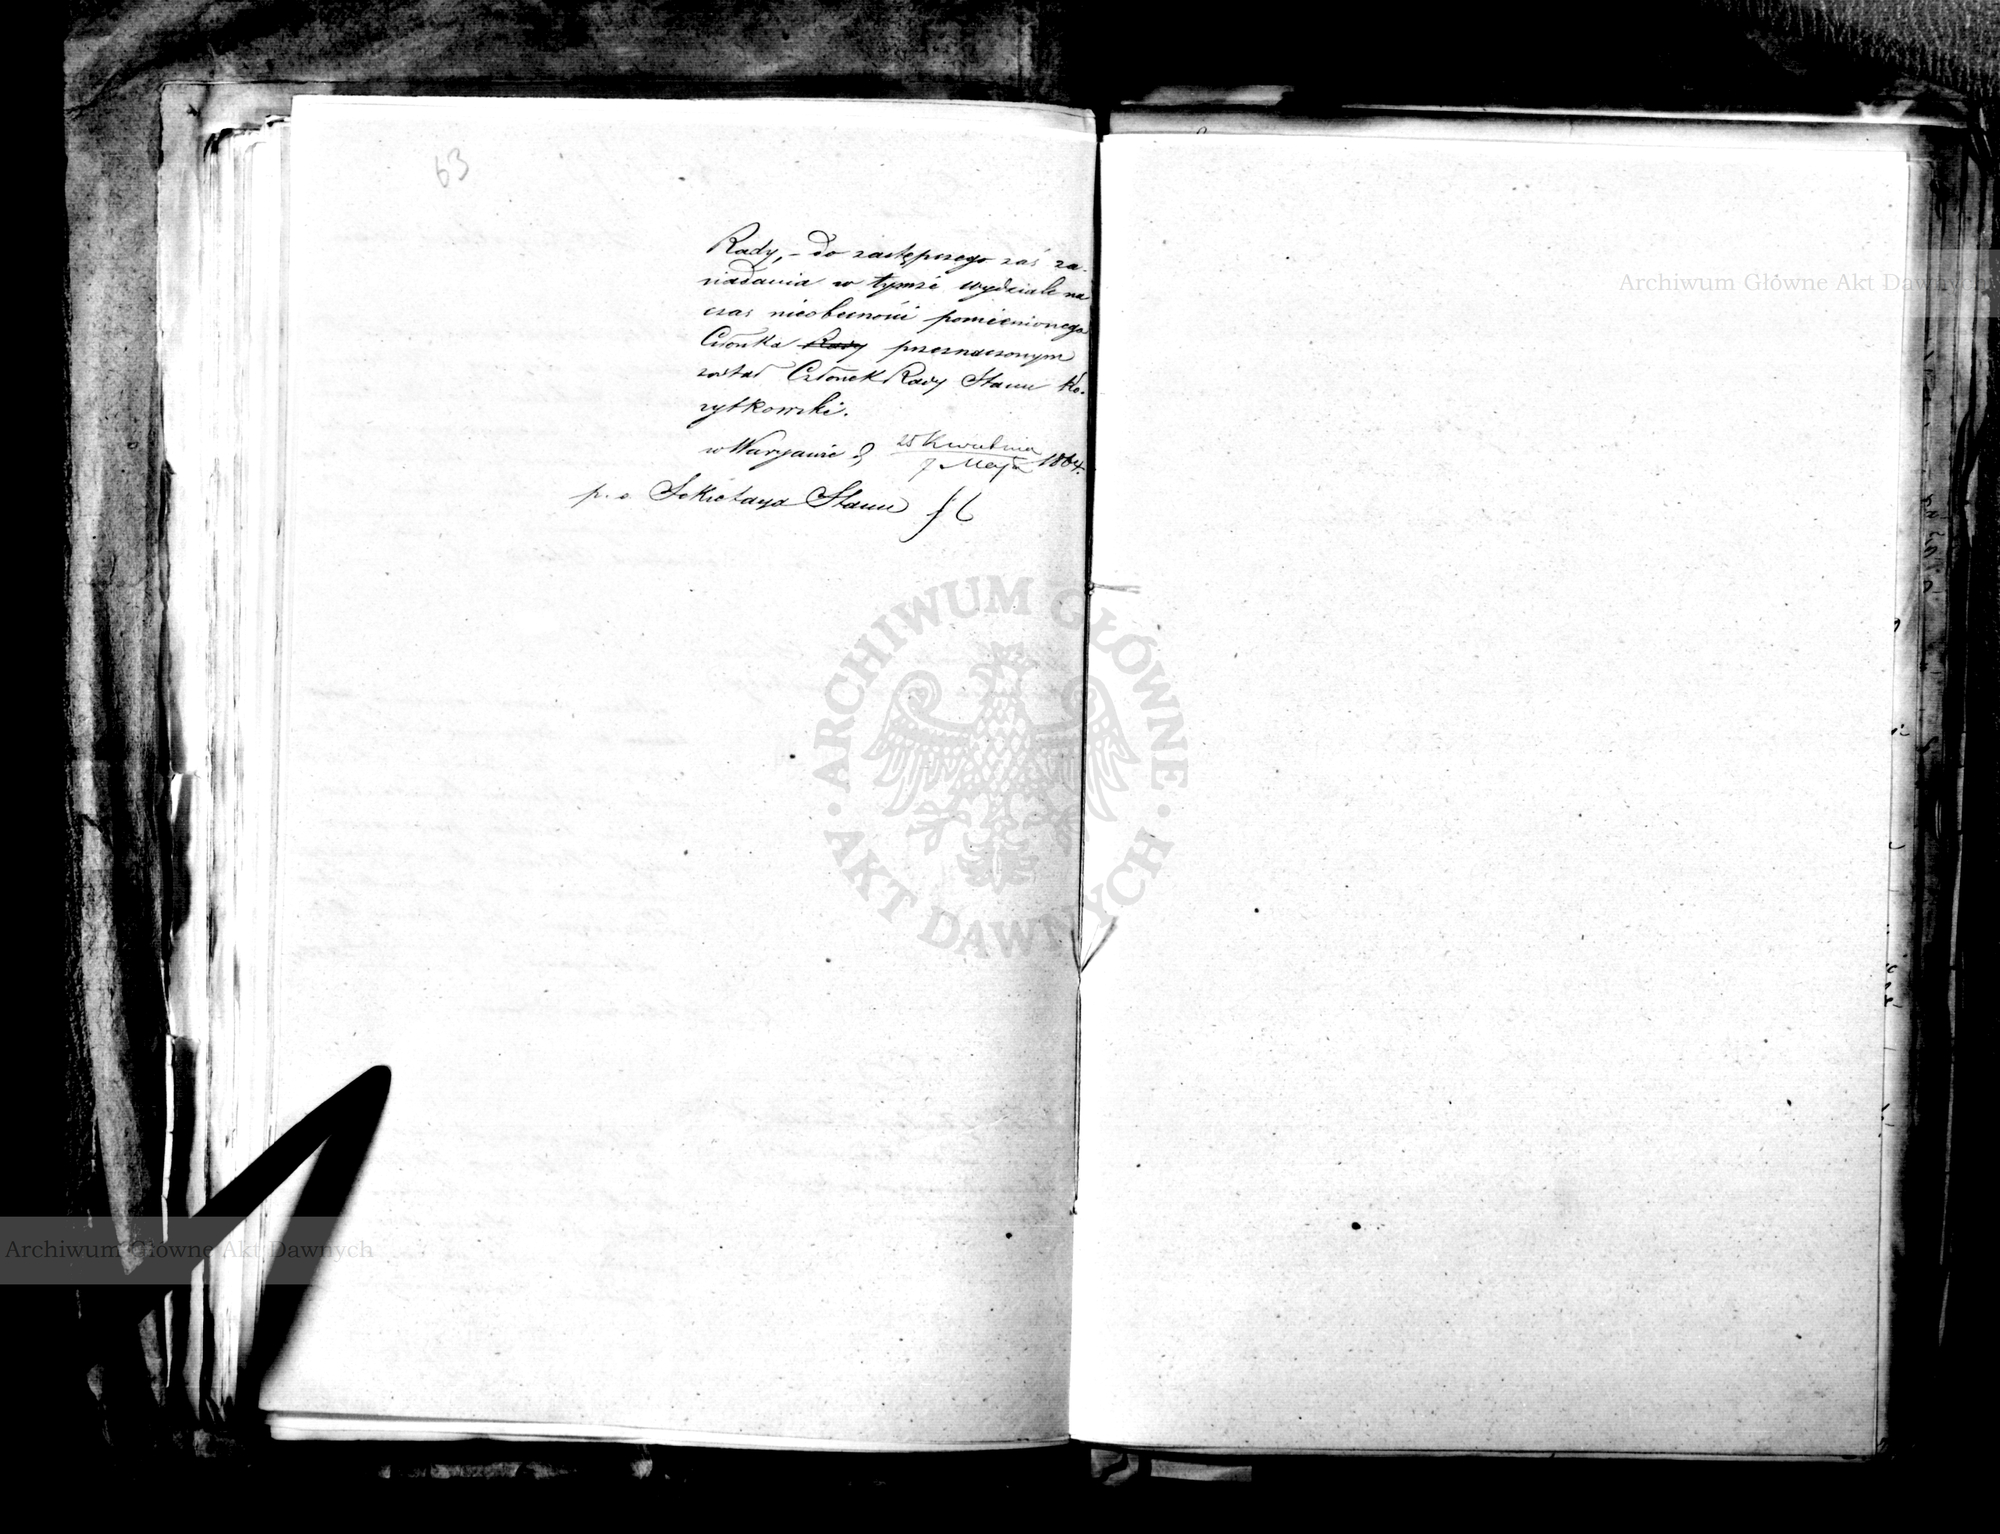 63
Rady, – do zastępczego zaś za-
siadania w tymże wydziale na
czas nieobecności pomienionego
Członka Rady przeznaczonym
został Członek Rady Stanu Ko-
rytkowski.
w Warszawie d. 25 Kwietnia
7 Maja 1864.
p. o. Sekretarza Stanu
Archiwum Główne Akt Dawnych
ARCHIWUM GŁÓWNE · AKT DAWNYCH ·
Archiwum Główne Akt Dawnych